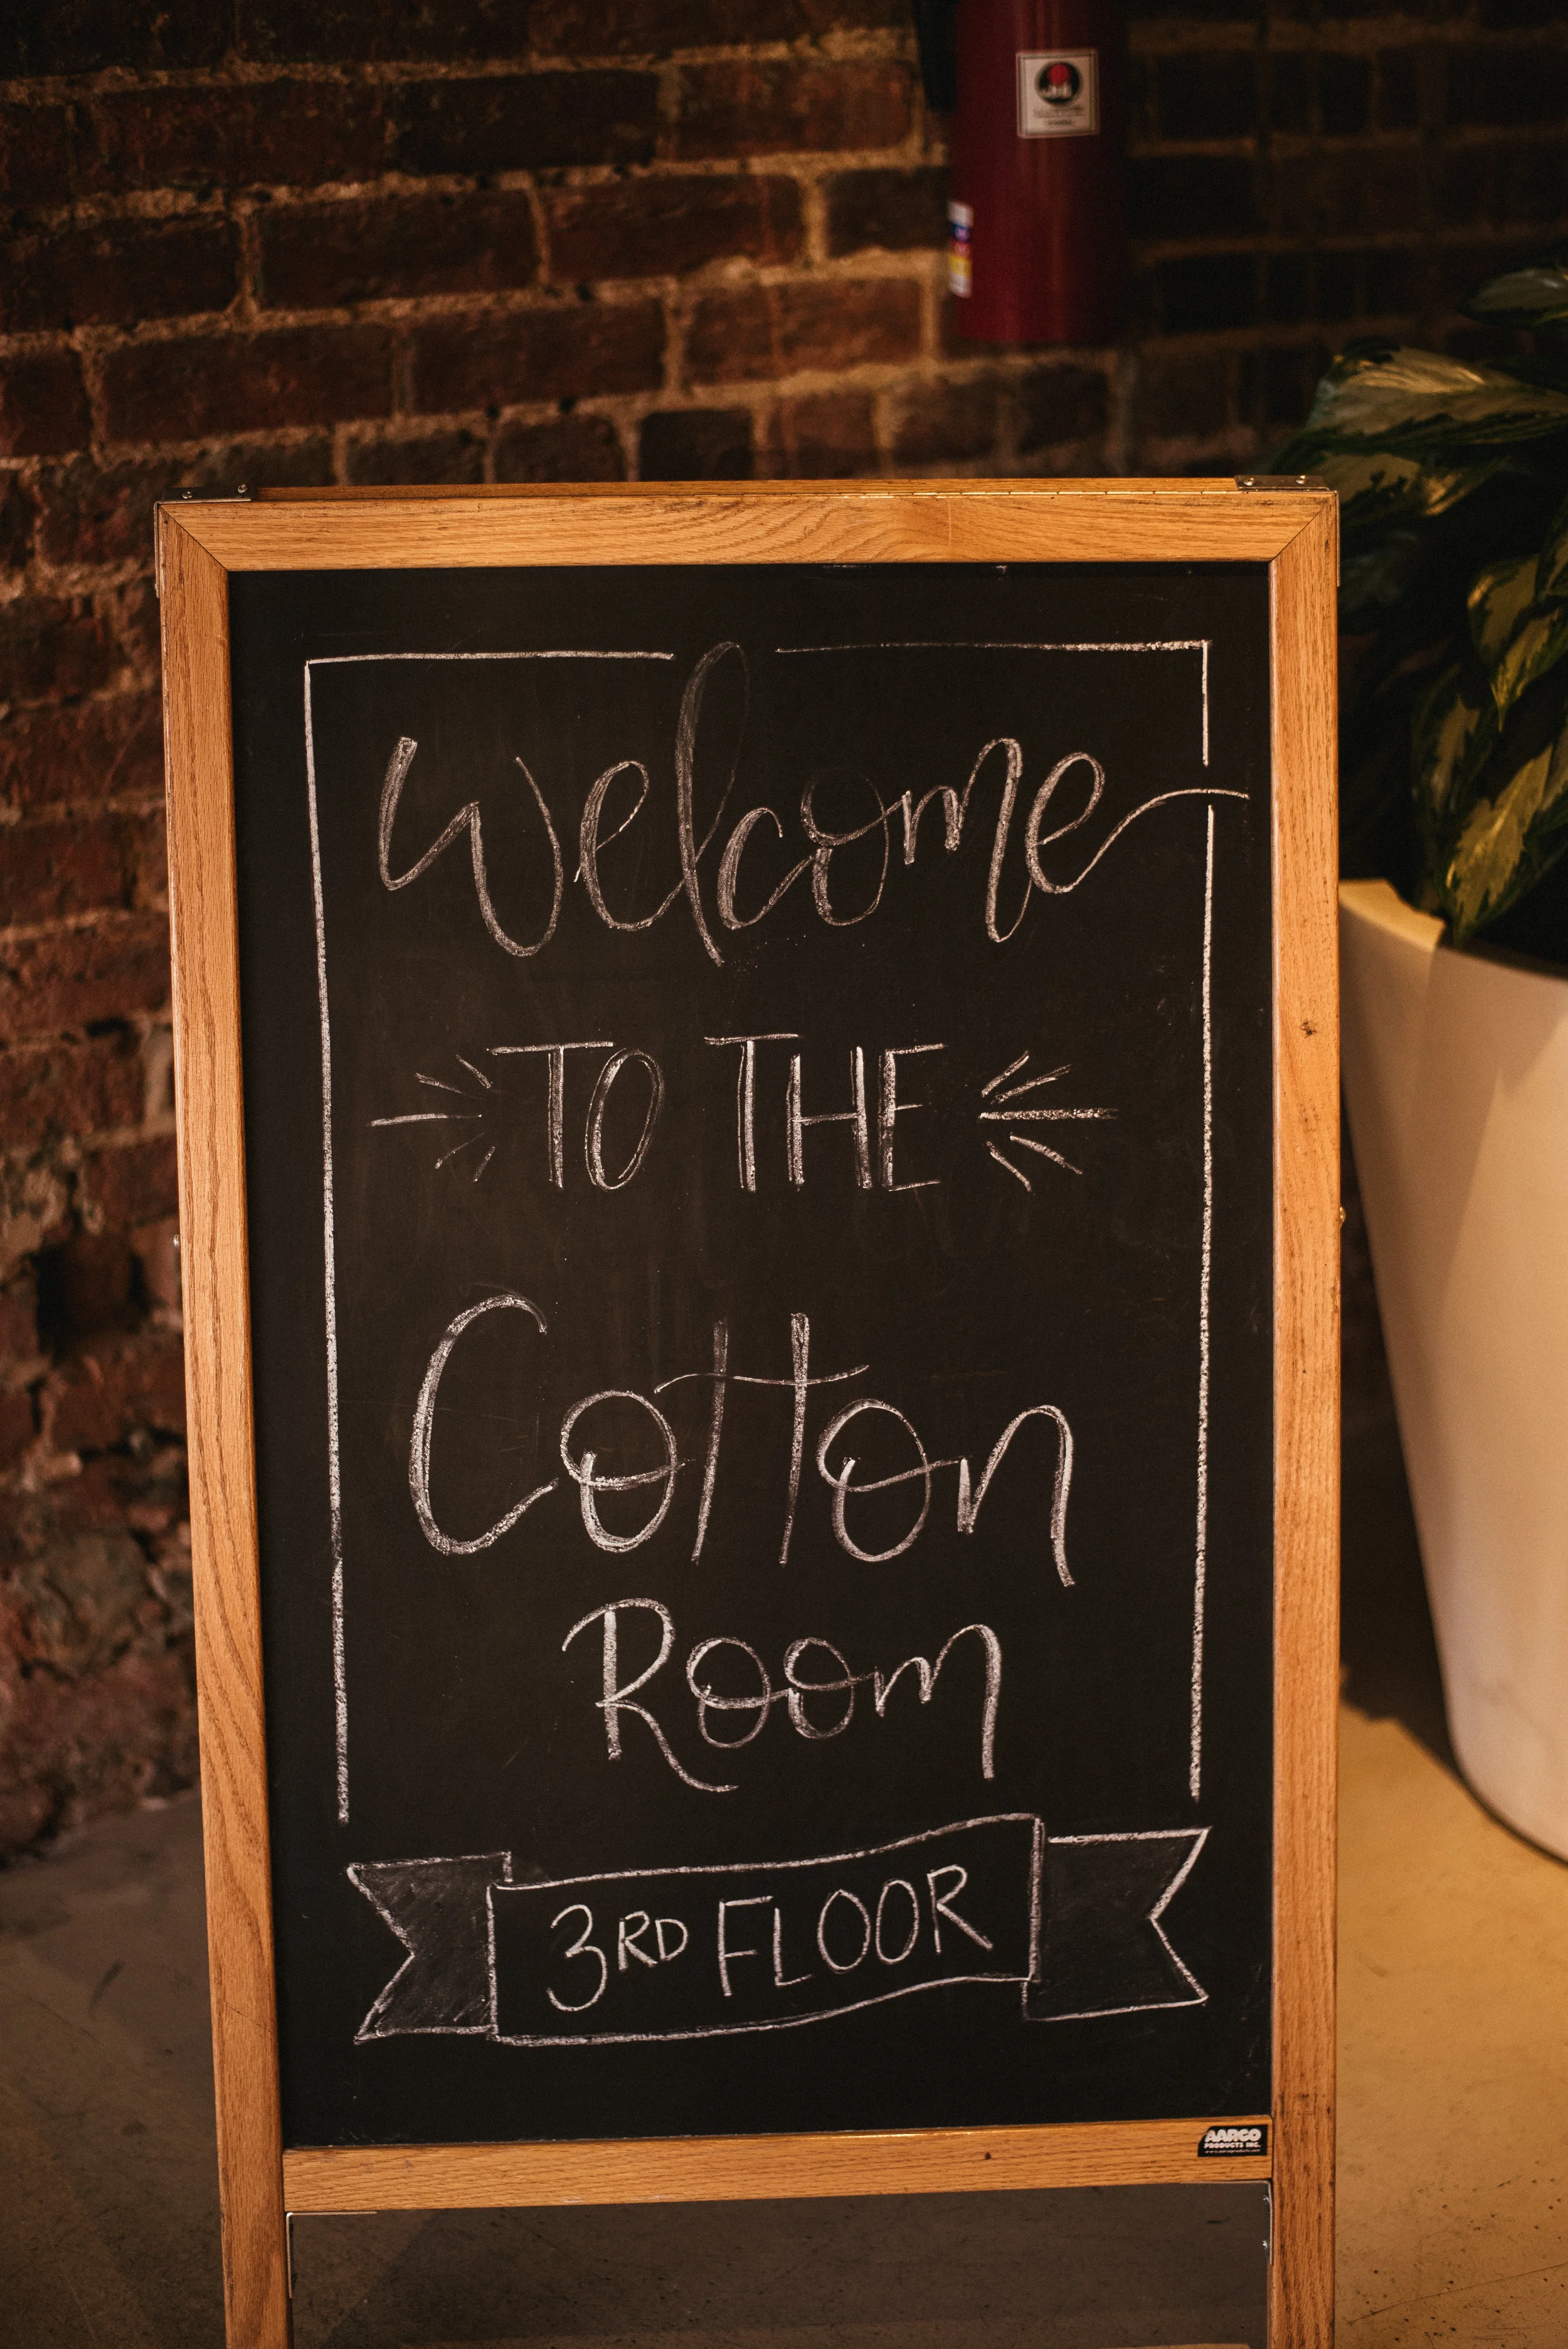 Welcome
TO THE
Cotton
Room
3RD FLOOR
AARCO
PRODUCTS INC.